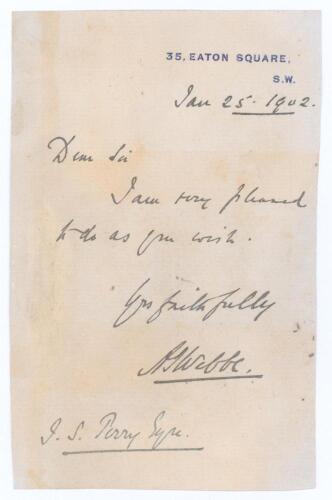 35, EATON SQUARE,
S.W.
Jan 25. 1902.
Dear Sir
I am very pleased
to do as you wish.
Yrs faithfully
AJWebbe.
J. S. Perry Esqre.